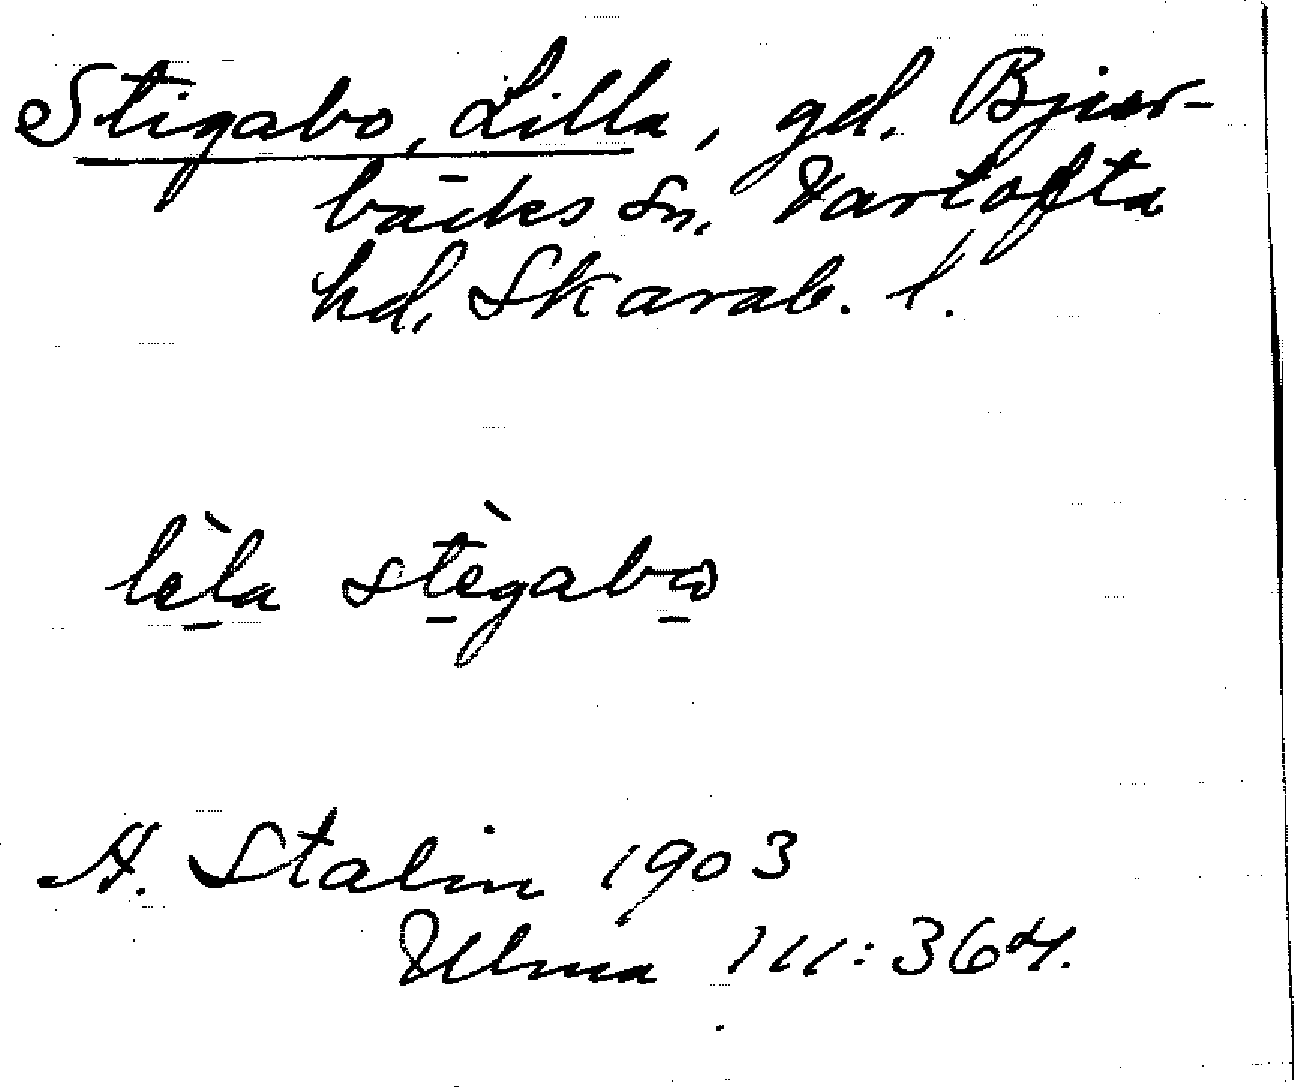 Stigabo, Lilla, gd. Bjur-
bäcks sn, Vartofta
hd, Skarab. l.
lè̱la stè̱gabω̱
A. Stalin 1903
Ulma 111:364.